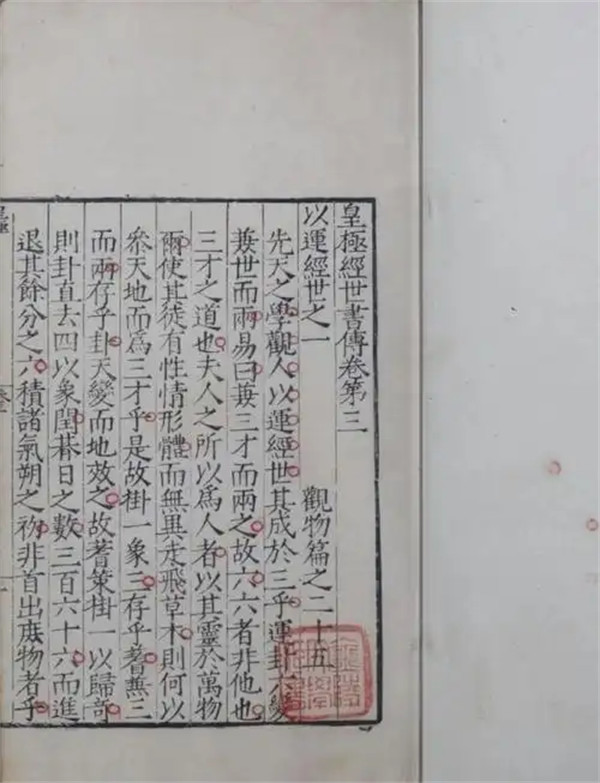 皇極經世書傳卷第三
以運經世之一 觀物篇之二十五
先天之學觀人以運經世其成於三乎運卦六變
兼世而兩易曰兼三才而兩之故六六者非他也
三才之道也夫人之所以爲人者以其靈於萬物
爾使其徒有性情形體而無異走飛草木則何以
叅天地而爲三才乎是故掛一象三存乎蓍兼三
而兩存乎卦天變而地效之故蓍策掛一以歸竒
則卦直去四以象閏朞日之數三百六十六而進
退其餘分之六積諸氣朔之初非首出庻物者乎